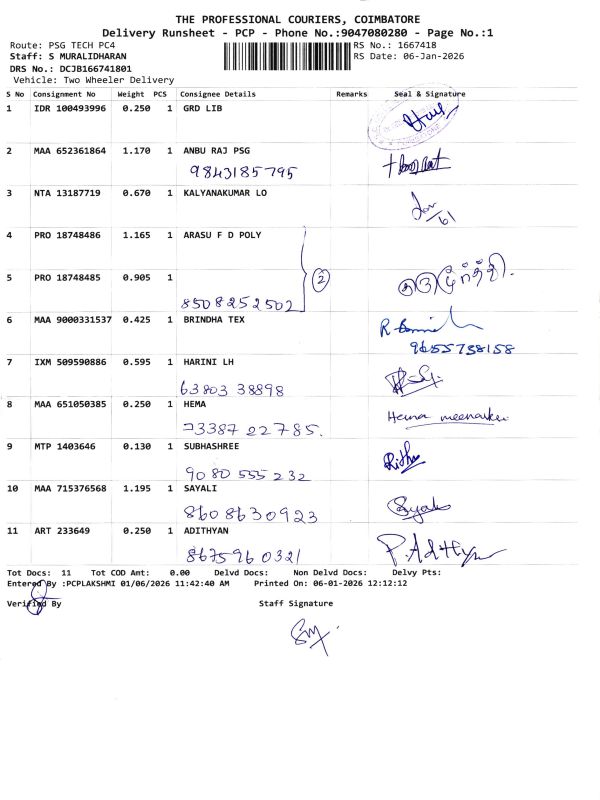 THE PROFESSIONAL COURIERS, COIMBATORE
Delivery Runsheet - PCP - Phone No.:9047080280 - Page No.:1
Route: PSG TECH PC4 RS No.: 1667418
Staff: S MURALIDHARAN RS Date: 06-Jan-2026
DRS No.: DCJB166741801
Vehicle: Two Wheeler Delivery
S No Consignment No Weight PCS Consignee Details Remarks Seal & Signature
1 IDR 100493996 0.250 1 GRD LIB
2 MAA 652361864 1.170 1 ANBU RAJ PSG
9843185795
3 NTA 13187719 0.670 1 KALYANAKUMAR LO
4 PRO 18748486 1.165 1 ARASU F D POLY
2
5 PRO 18748485 0.905 1
8508252502
6 MAA 9000331537 0.425 1 BRINDHA TEX
9655738158
7 IXM 509590886 0.595 1 HARINI LH
63803 38898
8 MAA 651050385 0.250 1 HEMA Hema meenakshi
73387 22785.
9 MTP 1403646 0.130 1 SUBHASHREE
9080 555 232
10 MAA 715376568 1.195 1 SAYALI
8608630923
11 ART 233649 0.250 1 ADITHYAN P. Adithyan
8675960321
Tot Docs: 11 Tot COD Amt: 0.00 Delvd Docs: Non Delvd Docs: Delvy Pts:
Entered By :PCPLAKSHMI 01/06/2026 11:42:40 AM Printed On: 06-01-2026 12:12:12
Verified By Staff Signature